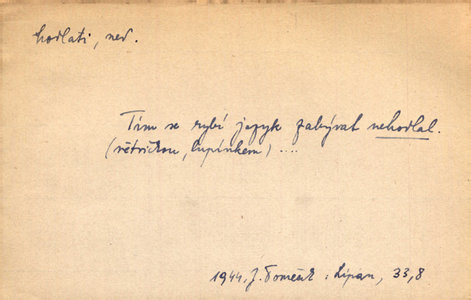 hodlati, ned.
Tím se rybí jazyk zabývat nehodlal.
(větvičkou, lupínkem) ....
1944, J. Tomeček: Lipan, 33,8